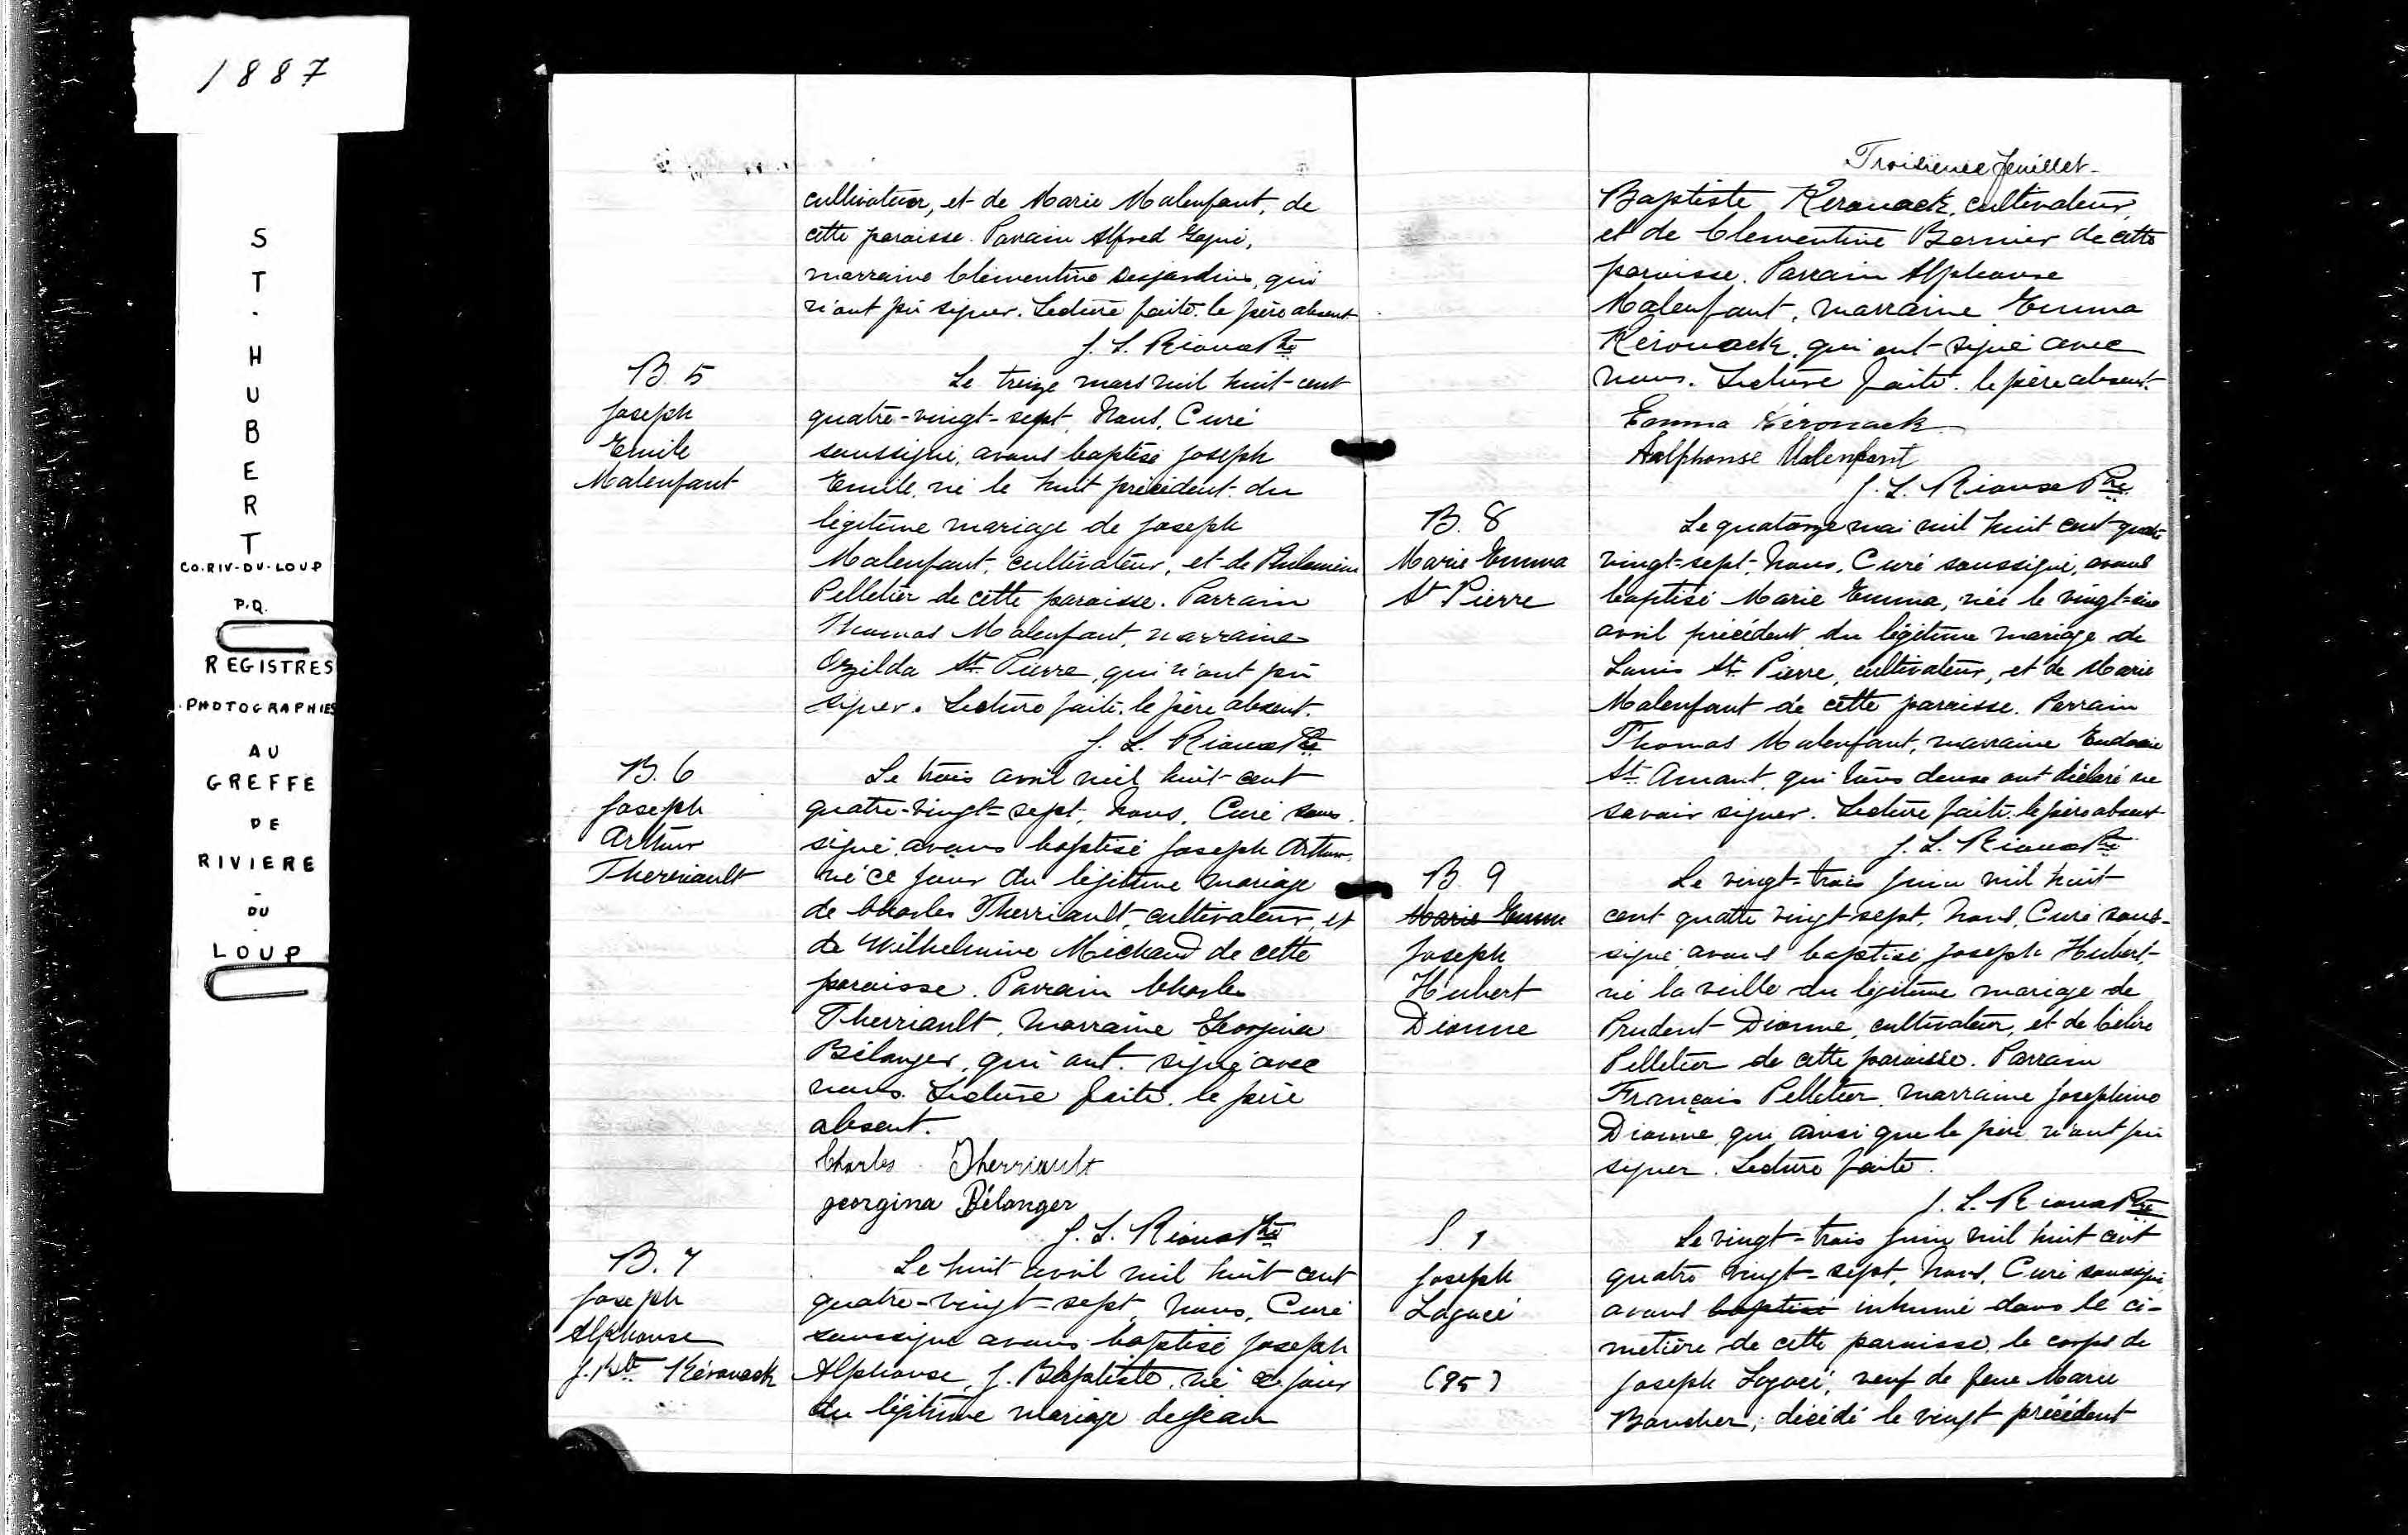 1887
ST. HUBERT
CO. RIV-DU-LOUP
P.Q.
REGISTRES
PHOTOGRAPHIES
AU
GREFFE
DE
RIVIERE
-
DU
-
LOUP
cultivateur, et de Marie Malenfant, de
cette paroisse. Parrain Alfred
marraine Clementine Desjardins, qui
n'ont pû signer. Lecture faite. le père absent.
J. L. Rioux Ptre
B. 5
Joseph
Emile
Malenfant
Le treize mars mil huit-cent
quatre-vingt-sept, Nous, Curé
soussigné, avons baptisé Joseph
Emile, né le huit précédent du
légitime mariage de Joseph
Malenfant, cultivateur, et de Philomène
Pelletier de cette paroisse. Parrain
Thomas Malenfant, marraine
Ozilda St. Pierre, qui n'ont pû
signer. Lecture faite. le père absent.
J. L. Rioux Ptre
B. 6
Joseph
Arthur
Therriault
Le trois avril mil huit-cent
quatre-vingt-sept, Nous, Curé sous-
signé, avons baptisé Joseph Arthur
né ce jour du légitime mariage
de Charles Therriault, cultivateur, et
de Wilhelmine Michaud de cette
paroisse. Parrain Charles
Therriault, marraine Georgina
Bélanger, qui ont signé avec
nous. Lecture faite. le père
absent.
Charles Therriault
georgina Bélanger
J. L. Rioux Ptre
B. 7
Joseph
Alphonse
J. Bte Kérouack
Le huit avril mil huit cent
quatre-vingt-sept, Nous, Curé
soussigné avons baptisé Joseph
Alphonse, J. Baptiste, né ce jour
du légitime mariage de Jean
Troisieme feuillet
Baptiste Kérouack, cultivateur,
et de Clementine Bernier de cette
paroisse. Parrain Alphonse
Malenfant, marraine Emma
Kérouack, qui ont signé avec
nous. Lecture faite. le père absent.
Emma Kérouack
Aalphonse Malenfant
J. L. Rioux Ptre
B. 8
Marie Emma
St Pierre
Le quatorze mai mil huit cent quatre-
vingt-sept, Nous, Curé soussigné, avons
baptisé Marie Emma, née le
avril précédent du légitime mariage de
Louis St. Pierre, cultivateur, et de Marie
Malenfant de cette paroisse. Parrain
Thomas Malenfant, marraine
St. Amant, qui tous deux ont déclaré ne
savoir signer. Lecture faite. le père absent
J. L. Rioux Ptre
B. 9
Marie Emma
Joseph
Hubert
Dionne
Le vingt-trois juin mil huit
cent quatre vingt-sept, Nous, Curé sous-
signé avons baptisé Joseph Hubert,
né la veille du légitime mariage de
Prudent Dionne, cultivateur, et de Célire
Pelletier de cette paroisse. Parrain
François Pelletier, marraine Josephine
Dionne, qui ainsi que le père n'ont pû
signer. Lecture faite.
J. L. Rioux Ptre
S. 1
Joseph
Lagacé
(95)
Le vingt-trois juin mil huit cent
quatre vingt-sept, Nous, Curé soussigné
avons baptisé inhumé dans le ci-
metière de cette paroisse, le corps de
Joseph Lagacé, veuf de feue Marie
Boucher, décédé le vingt précédent